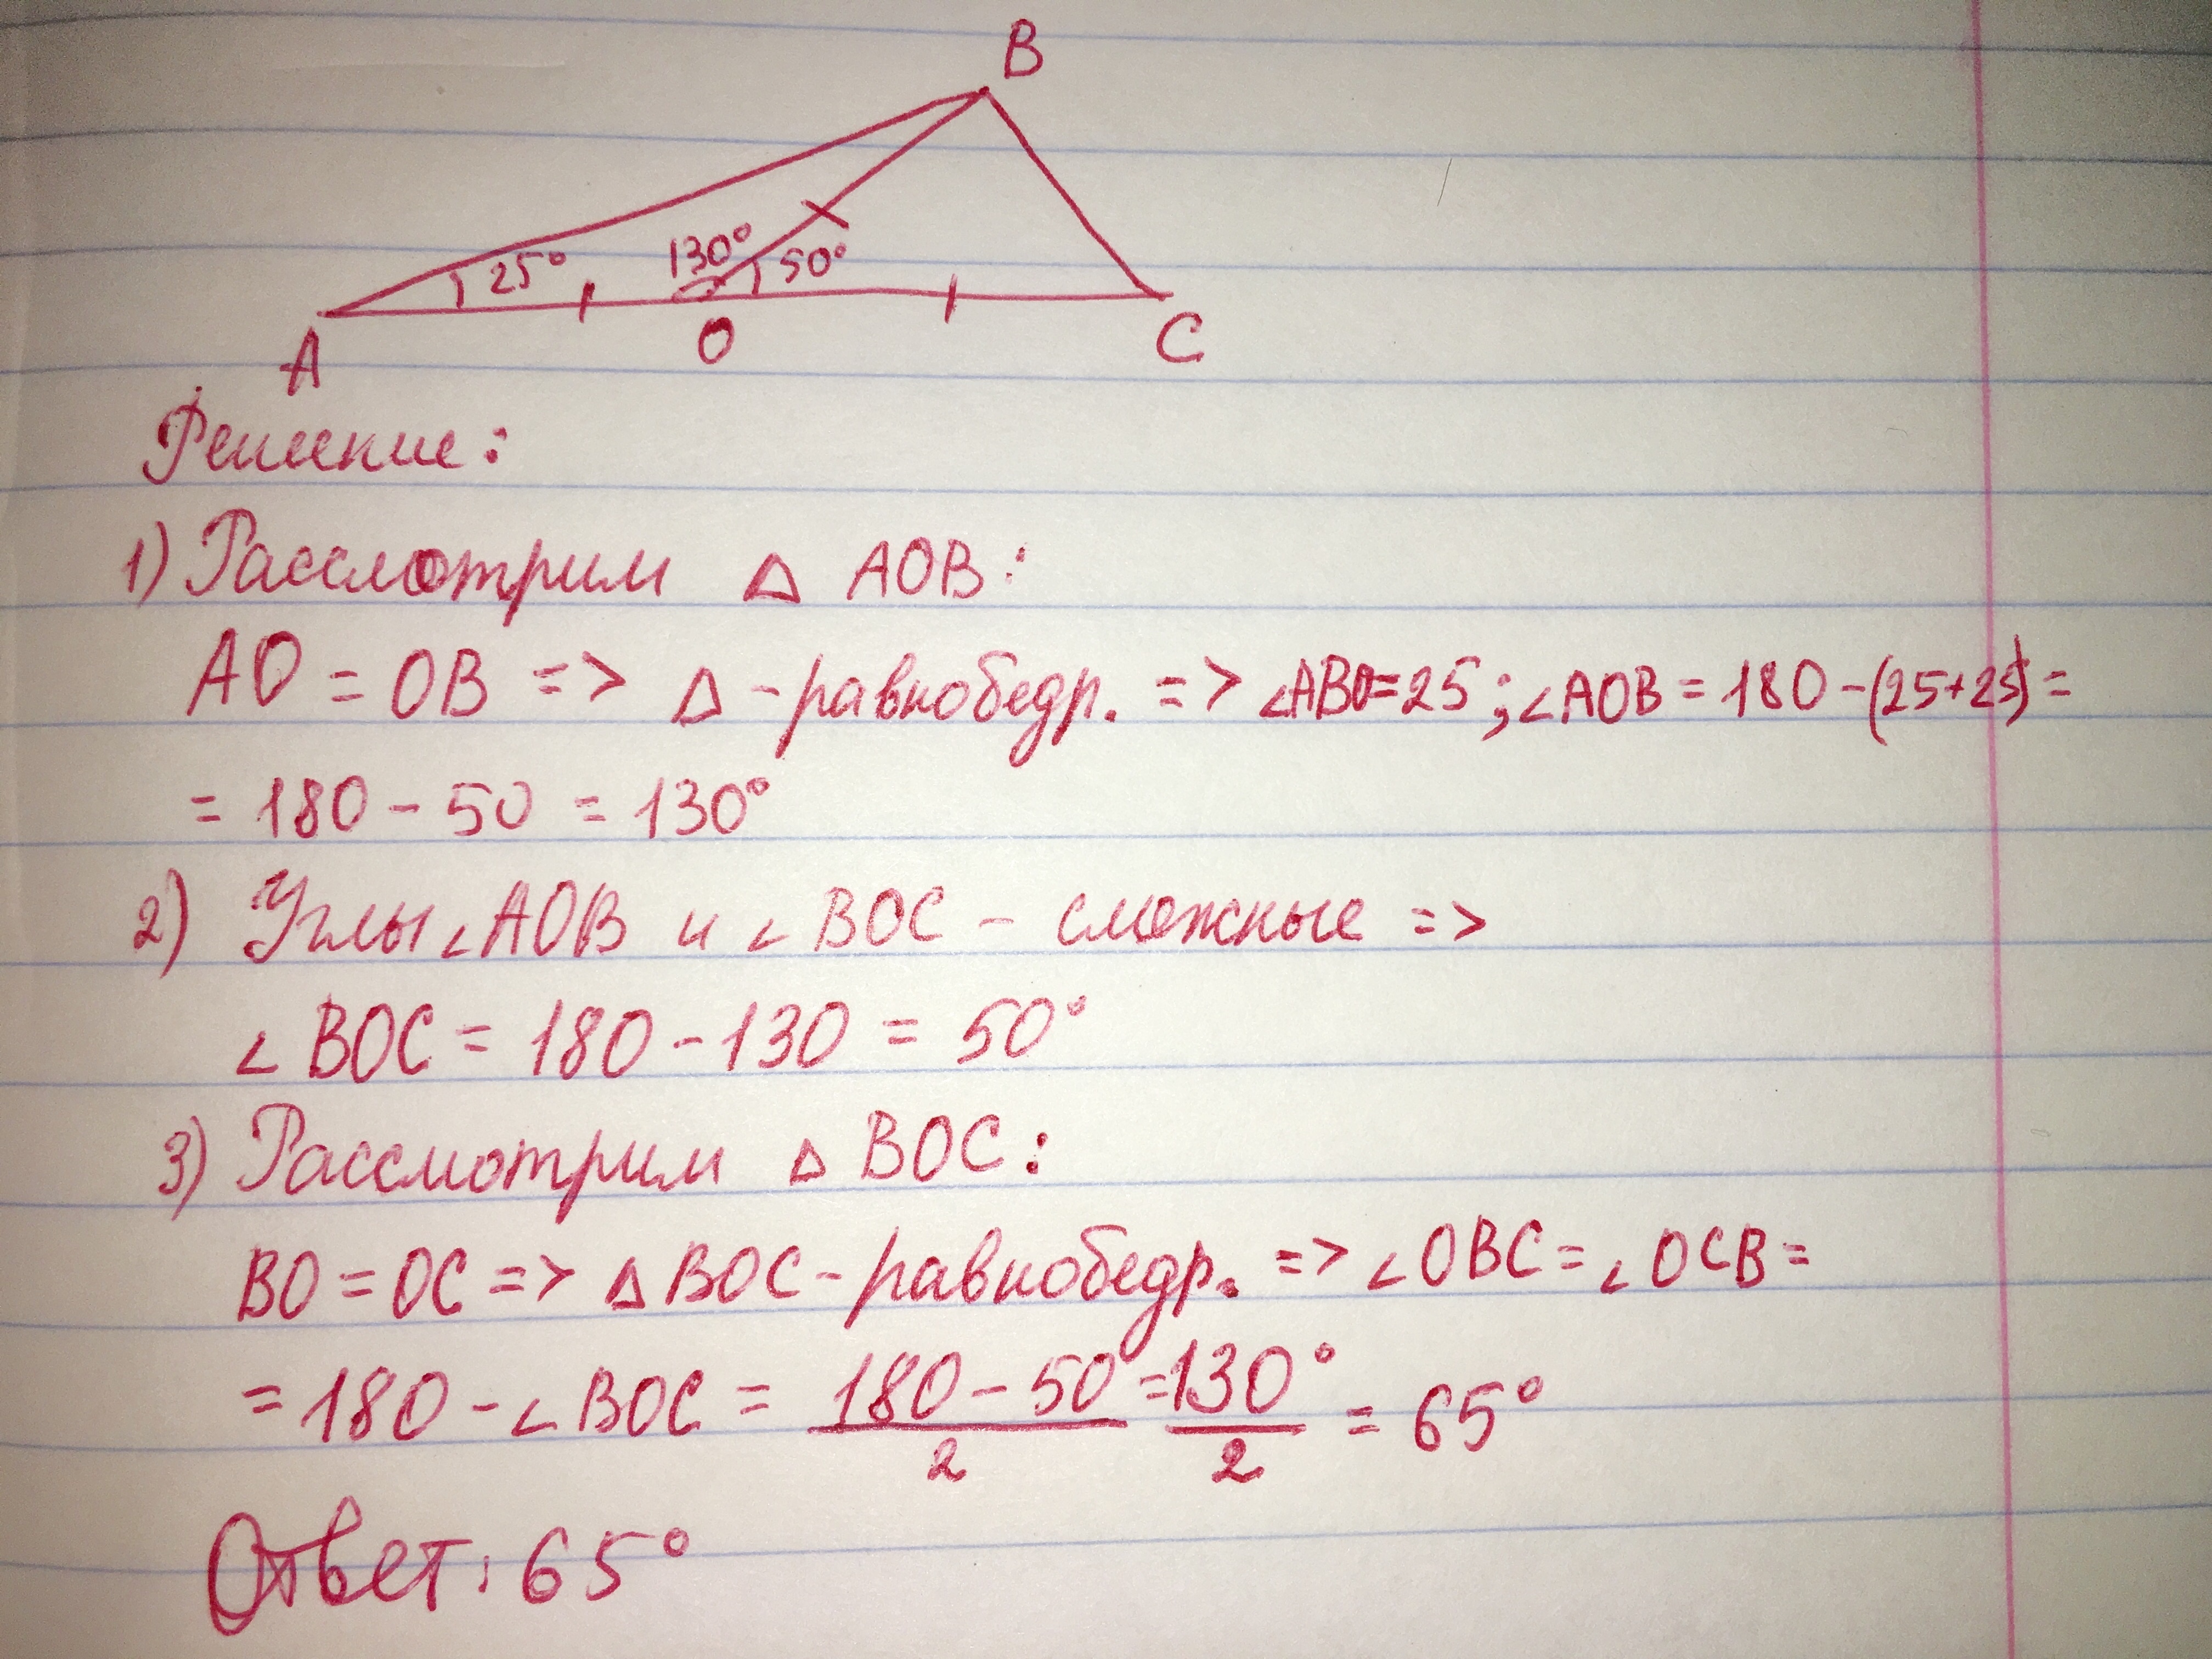 B
130°
25°
50°
A
O
C
Решение:
1) Рассмотрим △ AOB:
AO = OB => △ - равнобедр. => ∠ABO=25; ∠AOB = 180 - (25+25) =
= 180 - 50 = 130°
2) Углы ∠AOB и ∠BOC - смежные =>
∠BOC = 180 - 130 = 50°
3) Рассмотрим △ BOC:
BO = OC => △ BOC - равнобедр. => ∠OBC = ∠OCB =
= 180 - ∠BOC = 180 - 50 / 2 = 130° / 2 = 65°
Ответ: 65°